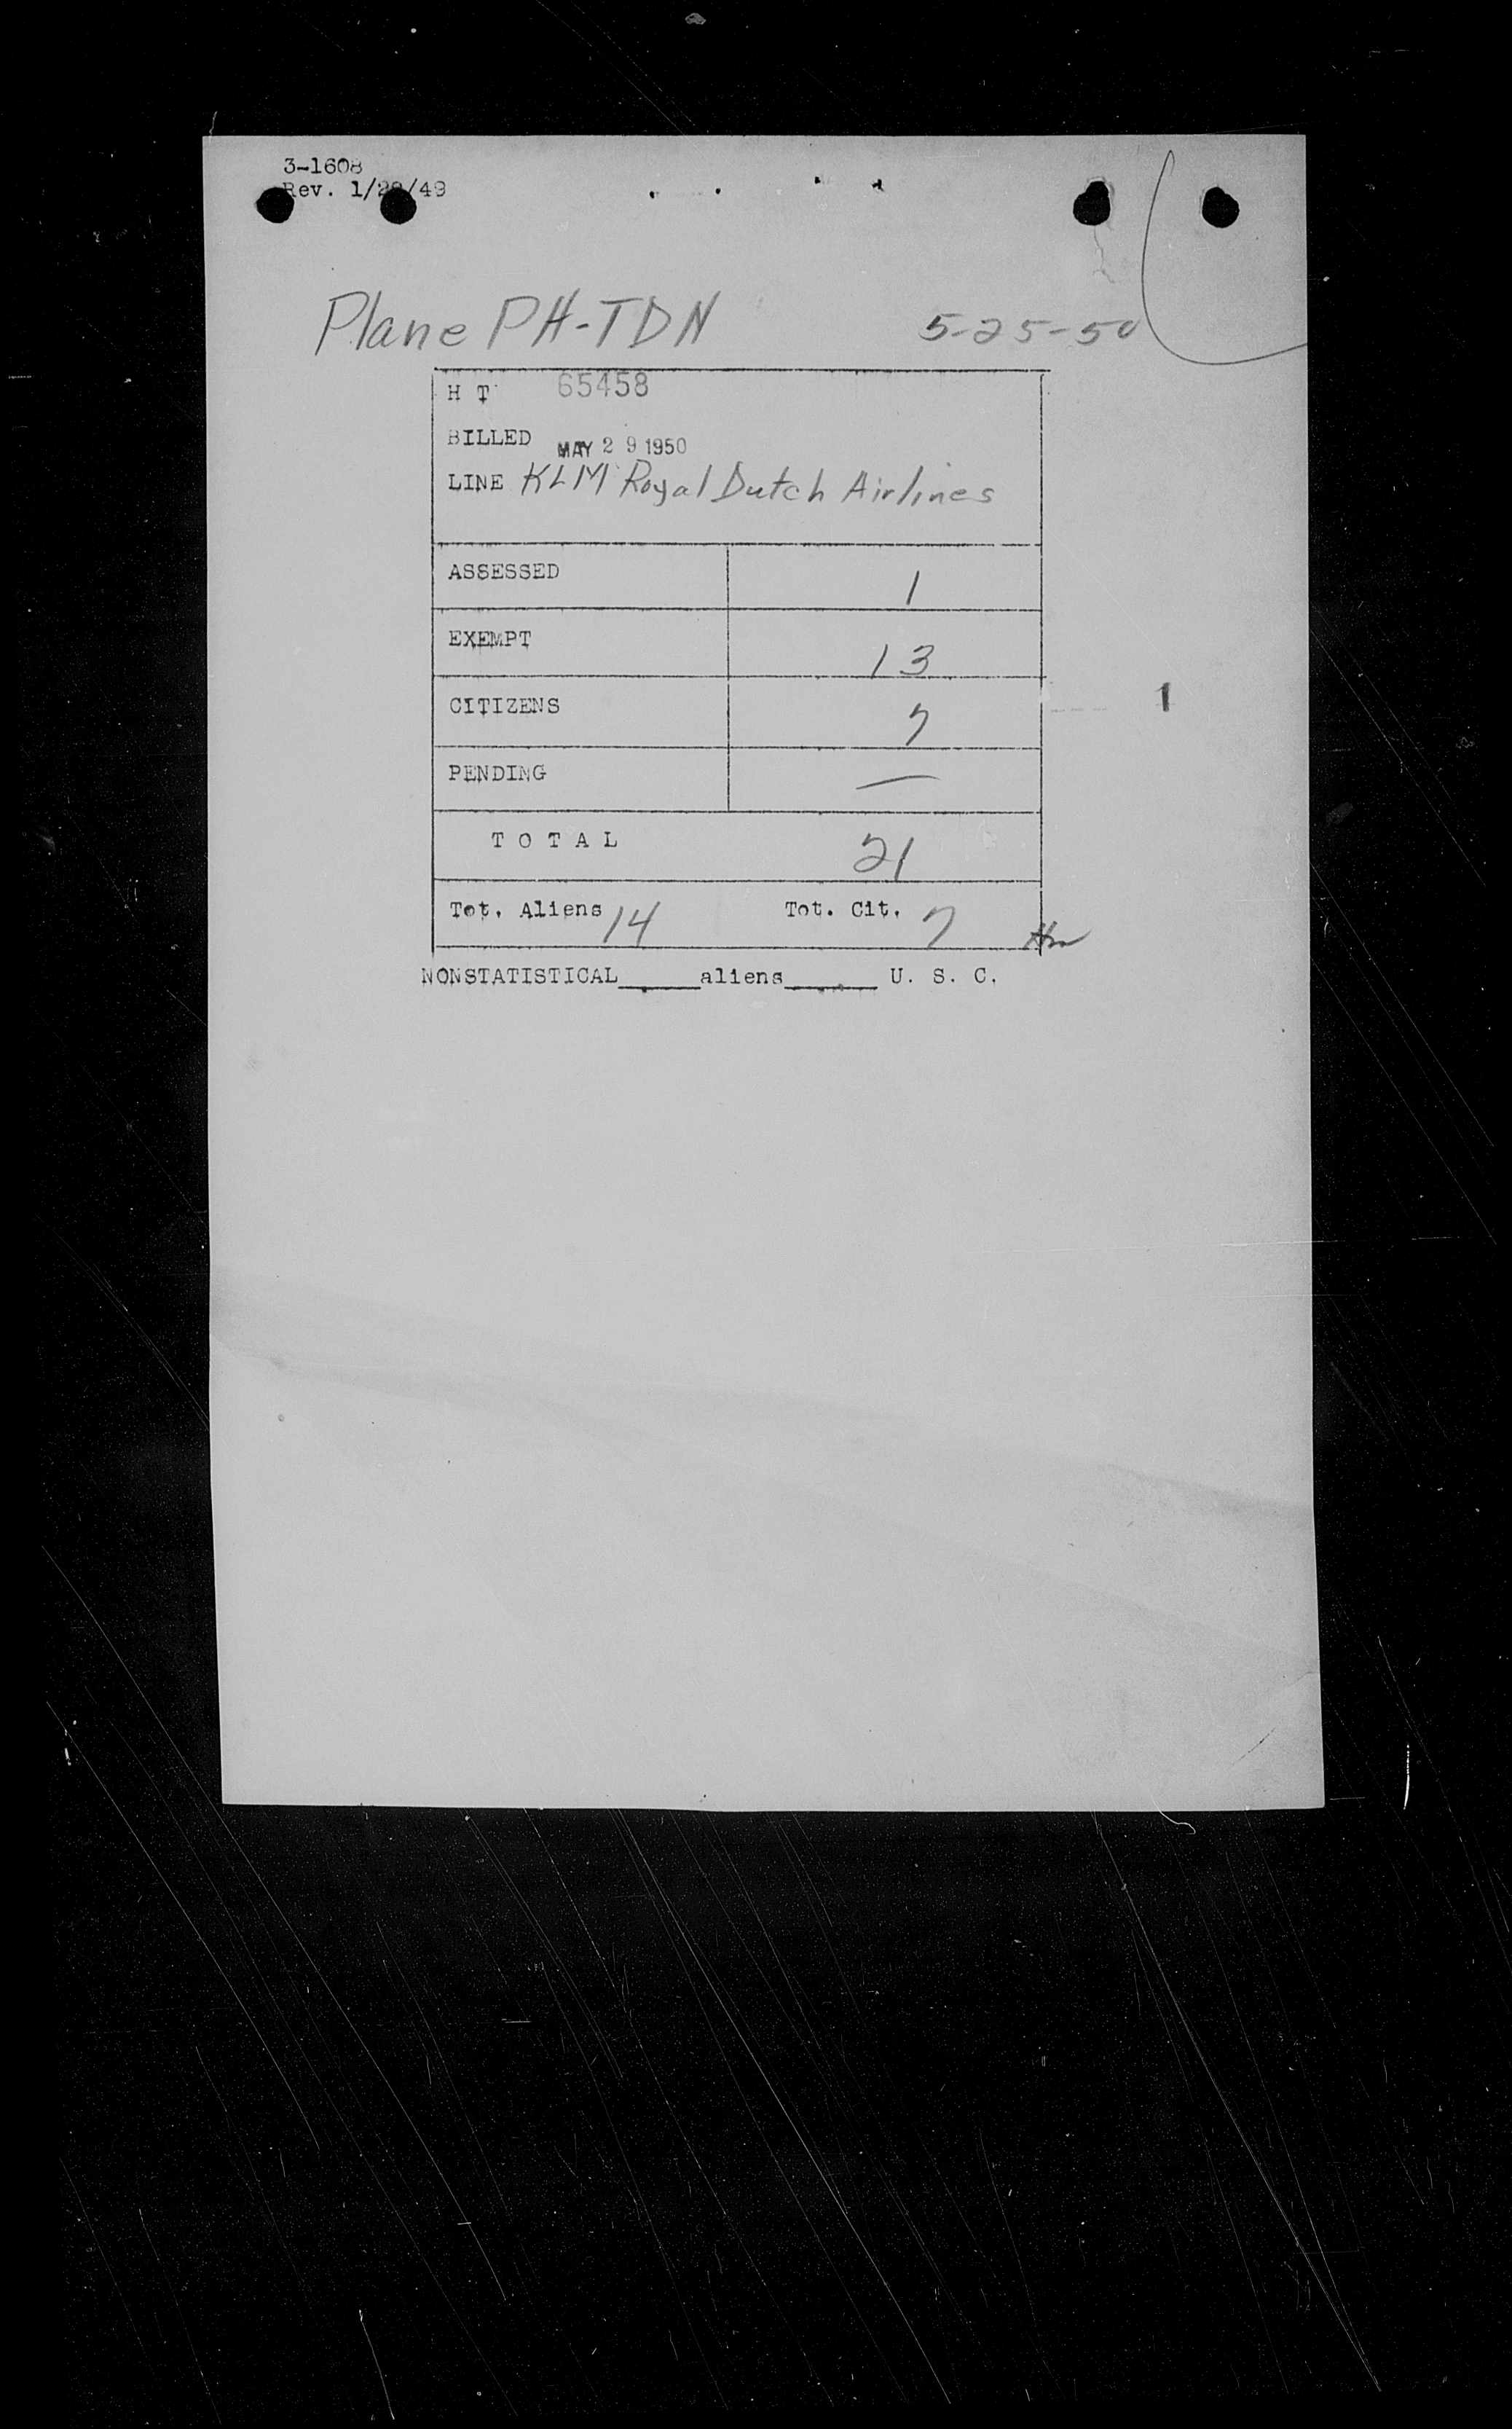 3-1608
Rev. 1/28/49
Plane PH-TDN 5-25-50
H T 65458
BILLED MAY 29 1950
LINE KLM Royal Dutch Airlines
ASSESSED 1
EXEMPT 13
CITIZENS 7 1
PENDING —
T O T A L 21
Tot. Aliens 14 Tot. Cit. 7
NONSTATISTICAL_____aliens______ U. S. C.